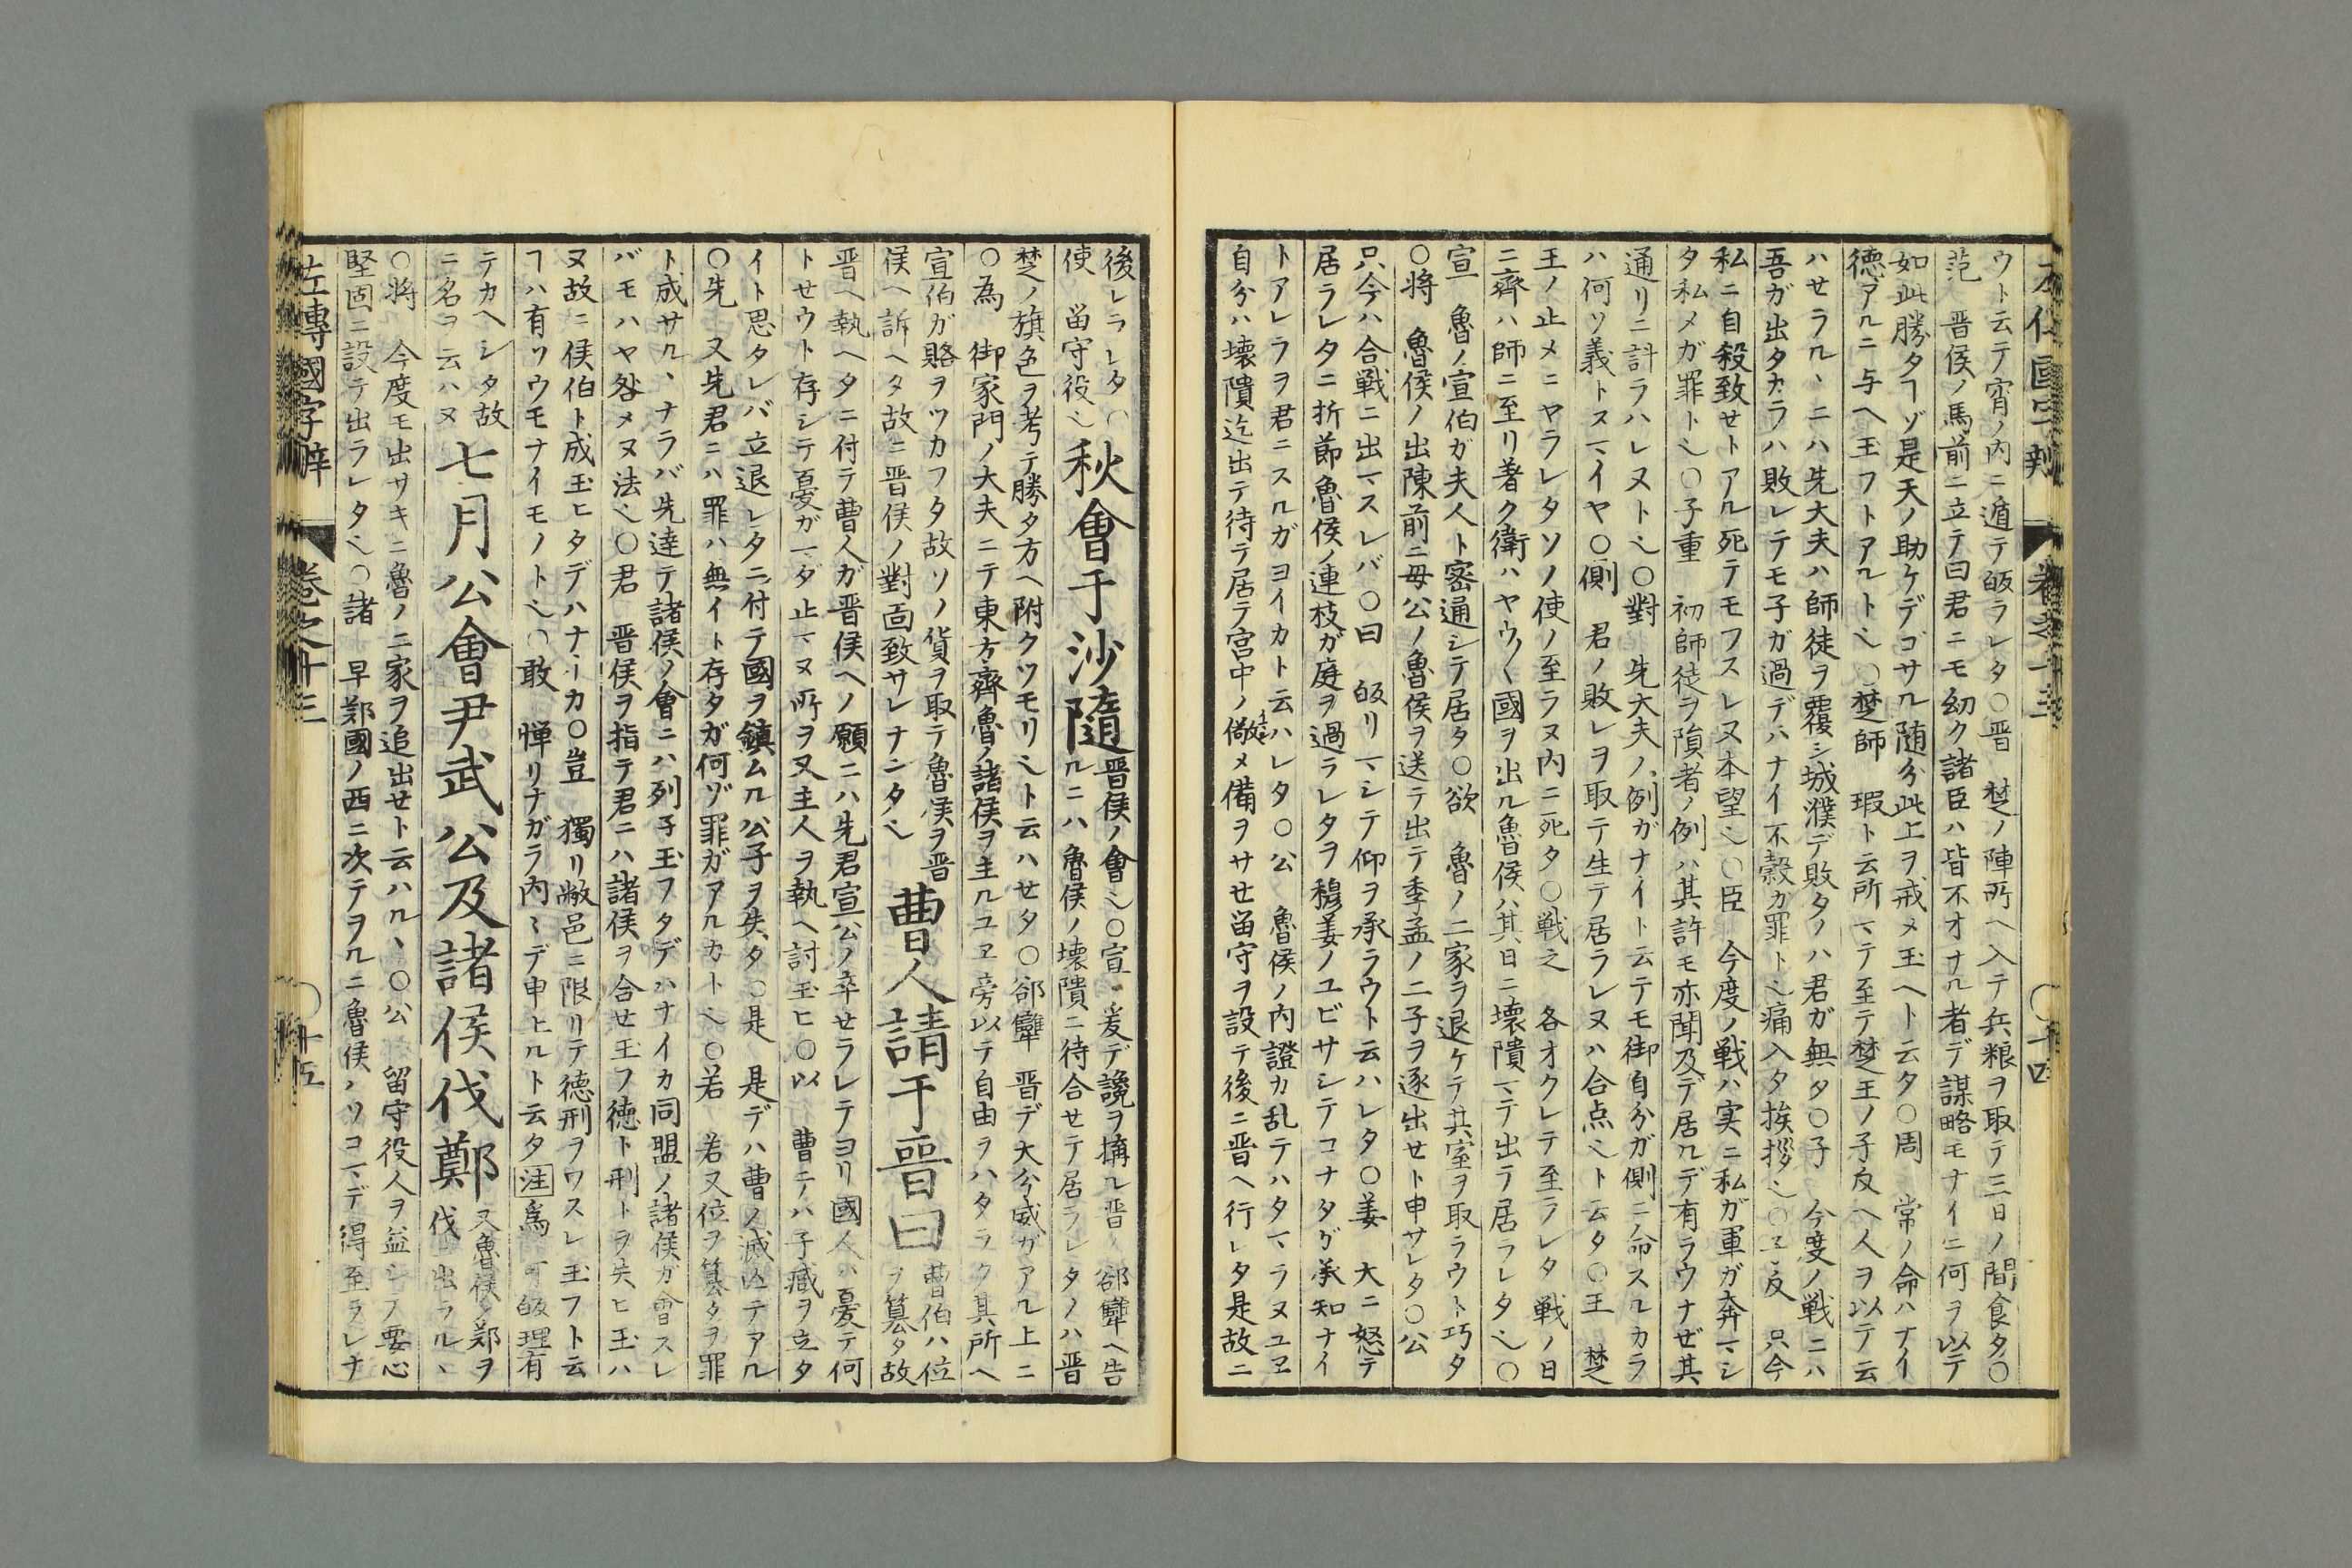 ウト云テ宵ノ内ニ遁テ皈ラレタ○晋　楚ノ陣所ヘ入テ兵粮ヲ取テ三日ノ間食タ○
范　晋侯ノ馬前ニ立テ曰君ニモ幼ク諸臣ハ皆不オナル者デ謀略モナイニ何ヲ以テ
如此勝タヿゾ是天ノ助ケデゴサル随分此上ヲ戒メ玉ヘト云タ○周　常ノ命ハナイ
徳アルニ与ヘ玉フトアルト也○楚師　瑕ト云所マテ至テ楚王ノ子反ヘ人ヲ以テ云
ハセラルヽニハ先大夫ハ師徒ヲ覆シ城濮デ敗タノハ君ガ無タ○子　今度ノ戦ニハ
吾ガ出タカラハ敗レテモ子ガ過デハナイ不穀ガ罪ト也痛入タ挨拶也○子反　只今
私ニ自殺致セトアル死テモフスレヌ本望也○臣　今度ノ戦ハ実ニ私ガ軍ガ奔マシ
タ私メガ罪ト也○子重　初師徒ヲ隕者ノ例ハ其許モ亦聞及デ居ルデ有ラウナゼ其
通リニ計ラハレヌト也○對　先大夫ノ例ガナイト云テモ御自分ガ側ニ命スルカラ
ハ何ソ義トスマイヤ○側　君ノ敗レヲ取テ生テ居ラレヌハ合点也ト云タ○王　楚
王ノ止メニヤラレタソノ使ノ至ラヌ内ニ死タ○戦之　各オクレテ至ラレタ戦ノ日
ニ齊ハ師ニ至リ著ク衛ハヤウ〱國ヲ出ル魯侯ハ其日ニ壊隤マデ出テ居ラレタ也○
宣　魯ノ宣伯ガ夫人ト密通シテ居タ○欲　魯ノ二家ヲ退ケテ其室ヲ取ラウト巧タ
○將　魯侯ノ出陳前ニ毋公ノ魯侯ヲ送テ出テ季孟ノ二子ヲ逐出セト申サレタ○公
只今ハ合戦ニ出マスレバ○曰　皈リマシテ仰ヲ承ラウト云ハレタ○姜　大ニ怒テ
居ラレタニ折節魯侯ノ連枝ガ庭ヲ過ラレタヲ穆姜ノユビサシテコナタガ承知ナイ
トアレラヲ君ニスルガヨイカト云ハレタ○公　魯侯ノ内證カ乱テハタマラヌユヱ
自分ハ壊隤迄出テ待テ居テ宮中ノ儆メ備ヲサセ留守ヲ設テ後ニ晋ヘ行レタ是故ニ
後レラレタ○
使　留守役也
秋會于沙隨
晋侯ノ會也○宣　爰デ讒ヲ搆ル晋ノ郤犨ヘ告
ルニハ魯侯ノ壊隤ニ待合セテ居ラレタノハ晋
楚ノ旗色ヲ考テ勝タ方ヘ附クツモリ也ト云ハセタ○郤犨　晋デ大分威ガアル上ニ
○為　御家門ノ大夫ニテ東方齊魯ノ諸侯ヲ主ルユヱ旁以テ自由ヲハタラク其所ヘ
宣伯ガ賂ヲツカフタ故ソノ貨ヲ取テ魯侯ヲ晋
侯ヘ訴ヘタ故ニ晋侯ノ對面致サレナンダ也
曹人請于晋曰
曹伯ハ位
ヲ簒タ故
晋ヘ執ヘタニ付テ曹人ガ晋侯ヘノ願ニハ先君宣公ノ卒セラレテヨリ國人ハ憂テ何
トセウト存シテ憂ガマダ止マヌ所ヲ又主人ヲ執ヘ討玉ヒ○以　曹ニハ子臧ヲ立タ
イト思タレバ立退レタニ付テ國ヲ鎮ムル公子ヲ失タ○是　是デハ曹ノ滅亡テアル
○先　又先君ニハ罪ハ無イト存タガ何ゾ罪ガアルカト也○若　若又位ヲ簒タヲ罪
ト成サルヽナラバ先達テ諸侯ノ會ニハ列子玉フタデハナイカ同盟ノ諸侯ガ會スレ
バモハヤ咎メヌ法也○君　晋侯ヲ指テ君ニハ諸侯ヲ合セ玉フ徳ト刑トヲ失ヒ玉ハ
ヌ故ニ侯伯ト成玉ヒタデハナイカ○豈　獨リ敝邑ニ限リテ德刑ヲワスレ玉フト云
ヿハ有ソウモナイモノト也○敢　憚リナガラ内ミデ申上ルト云タ注爲　可皈理有
テカヘシタ故
ニ名ヲ云ハヌ
七月公會尹武公及諸侯伐鄭
又魯侯ノ鄭ヲ
伐　出ラルヽ
○將　今度モ出サキニ魯ノ二家ヲ追出セト云ハルヽ○公　留守役人ヲ益シテ要心
堅固ニ設テ出ラレタ也○諸　早鄭國ノ西ニ次テヲルニ魯侯ノソコマデ得至ラレナ
左傳國字辨　卷之十三　○十五